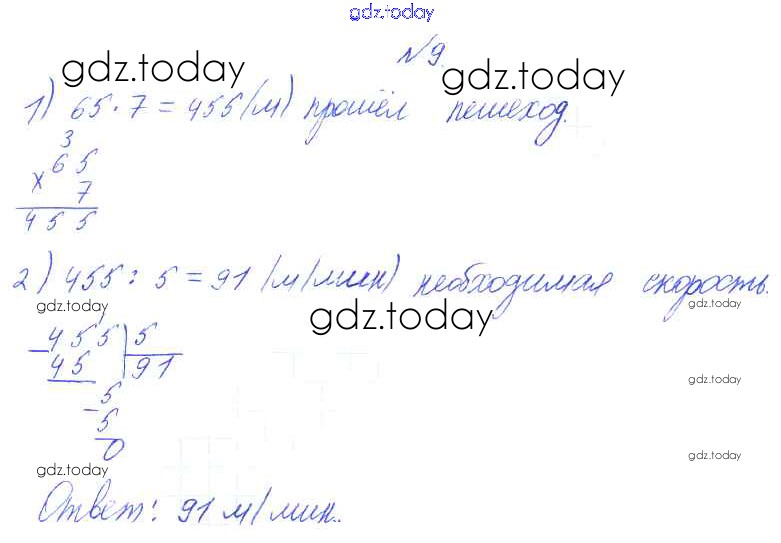 gdz.today
№9.
gdz.today gdz.today
1) 65 · 7 = 455 (м) прошёл пешеход.
3
× 65
7
455
2) 455 : 5 = 91 (м/мин) необходимая скорость.
gdz.today gdz.today gdz.today
- 455 | 5
45 | 91
gdz.today
- 5
5
0
gdz.today gdz.today
Ответ: 91 м/мин.